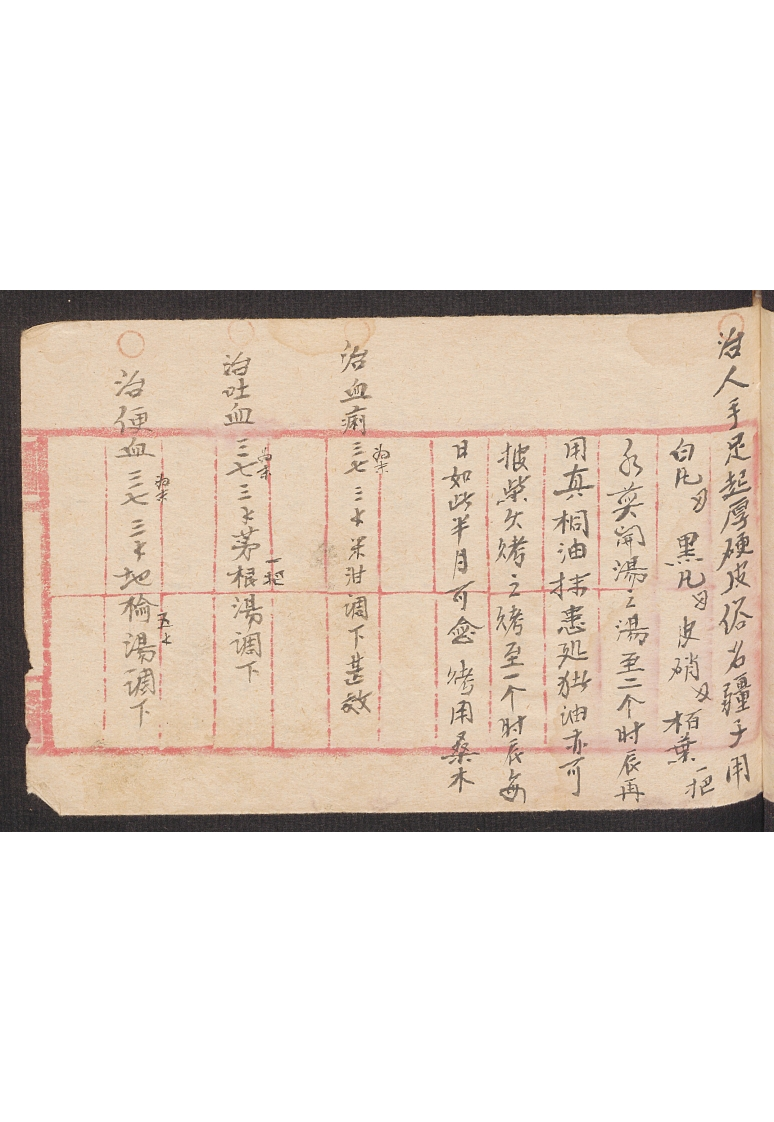 治人手足起厚硬皮俗名疆子用
白凡 黑凡 皮硝 栢葉一把
水熬開湯之湯至二个时辰再
用真桐油抹患处猪油亦可
披柴火烤之烤至一个时辰每
日如此半月可愈烤用桑木
治血痢三七為末三木米泔調下甚效
治吐血三七為末三木茅根一把湯調下
治便血三七為末三木地榆五木湯調下